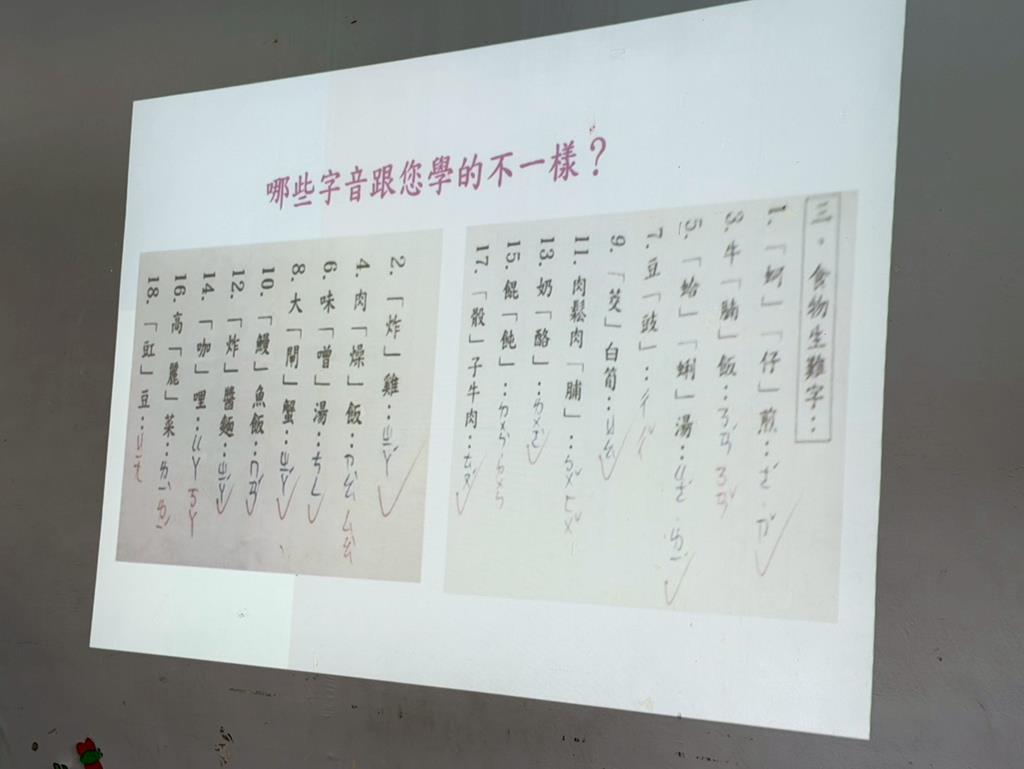 哪些字音跟您學的不一樣？
三。食物生難字：
1.「蚵」「仔」煎：
3.牛「腩」飯：ㄋㄢˇ
5.「蛤」「蜊」湯：ㄍㄜˊ ㄌㄧˊ
7.豆「豉」：ㄔˇ
9.「茭」白筍：ㄐㄠ
11.肉鬆肉「脯」：ㄈㄨˇ
13.奶「酪」：ㄌㄨㄛˋ
15.餛「飩」：
17.「骰」子牛肉：ㄊㄡˊ
2.「炸」雞：ㄓㄚˊ
4.肉「燥」飯：ㄙㄠ
6.味「噌」湯：ㄘㄥ
8.大「閘」蟹：ㄓㄚˊ
10.「鰻」魚飯：ㄇㄢˊ
12.「炸」醬麵：ㄓㄚˊ
14.「咖」哩：ㄍㄚ ㄎㄚ
16.高「麗」菜：ㄌㄧˋ ㄌㄧˊ
18.「豇」豆：ㄐㄧㄤ